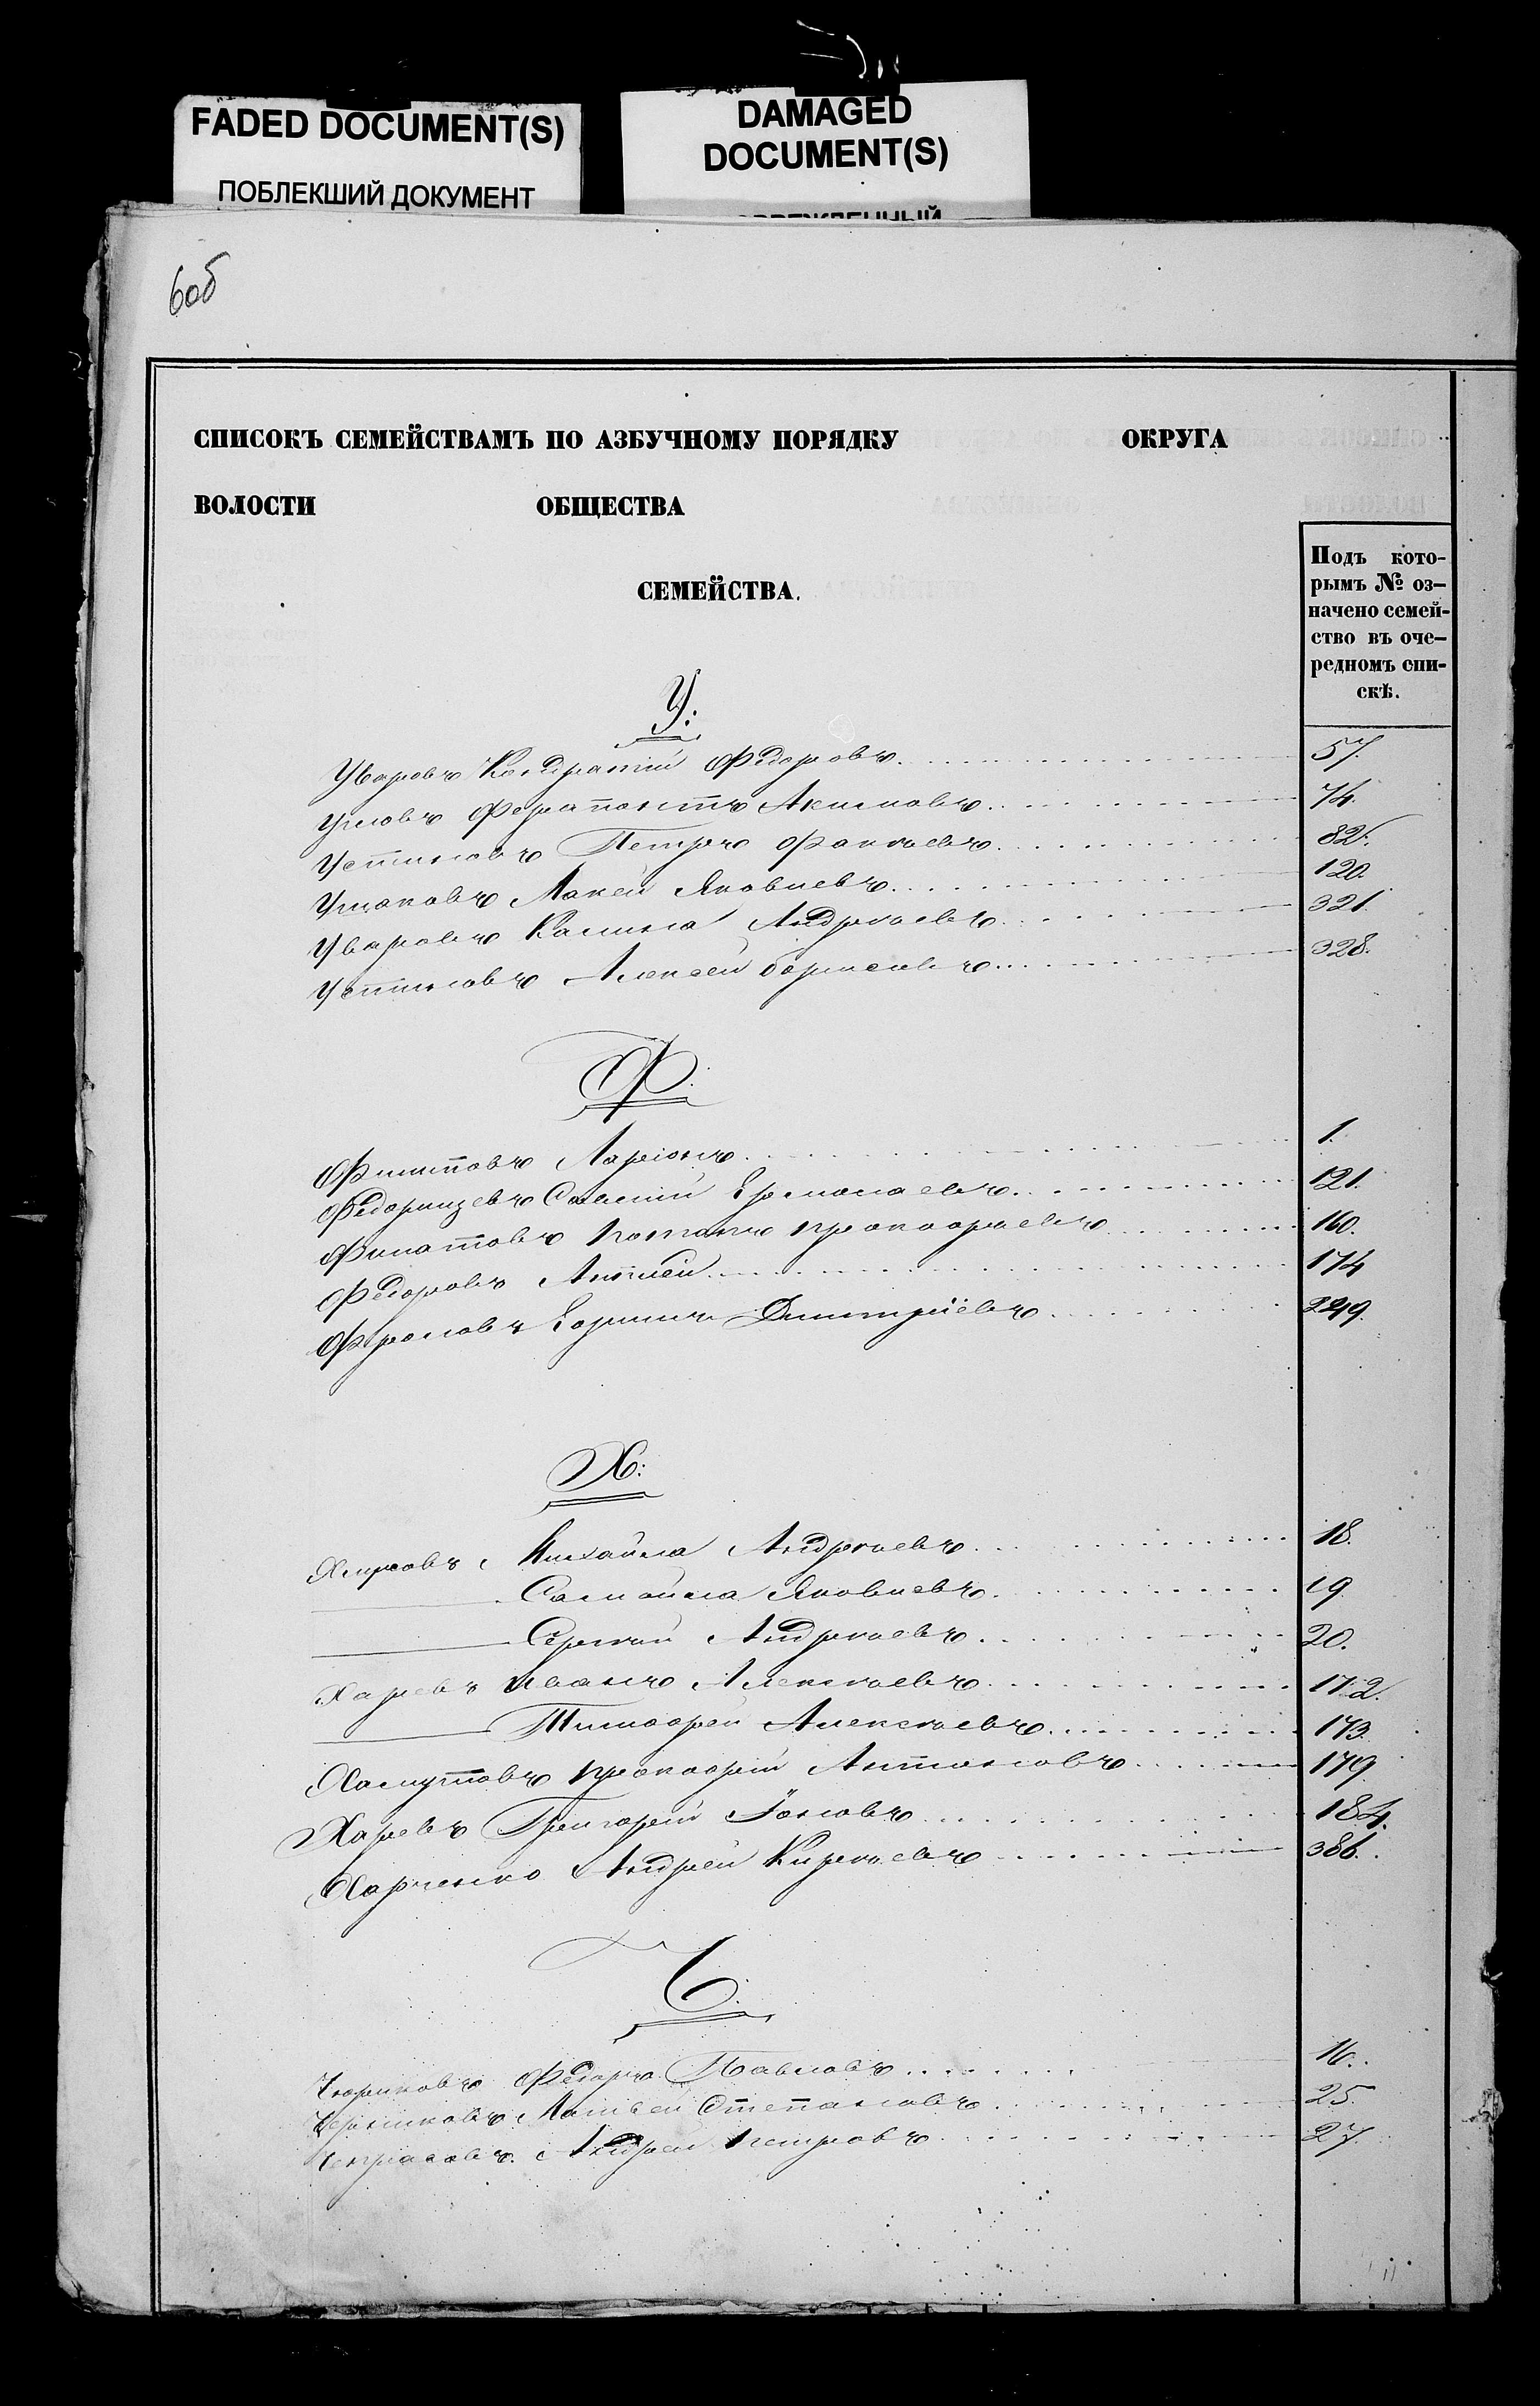 FADED DOCUMENT(S)
ПОБЛЕКШИЙ ДОКУМЕНТ
DAMAGED
DOCUMENT(S)
6об
СПИСОКЪ СЕМЕЙСТВАМЪ ПО АЗБУЧНОМУ ПОРЯДКУ ОКРУГА
ВОЛОСТИ ОБЩЕСТВА
СЕМЕЙСТВА.
Подъ кото-
рымъ № оз-
начено семей-
ство въ оче-
редномъ спи-
скѣ.
У:
Уваровъ Кондратiй Ѳедоровъ 57.
Ферапонтъ Акимовъ 74.
Устиновъ Петръ Фокѣевъ 82.
Ушаковъ Макей Яковлевъ 120.
Уваровъ Калина Андрѣевъ 321.
Устиновъ Алексей борисовъ 328.
Ф:
Филиповъ Ларiонъ 1.
Савелiй Ермолаевъ 121.
Филатовъ потапъ прокофьевъ 160.
Федоровъ 174
Фроловъ Дмитрiевъ 249.
Х:
Михайла Андрѣевъ 18.
Самойла Яковлевъ 19
Сергѣй Андрѣевъ 20.
Харевъ иванъ Алексѣевъ 172.
Тимофей Алексѣевъ 173.
Хамутовъ прокофiй Антоновъ 179
Харевъ Григорiй Iоновъ 184.
Харченко Андрей Кирѣевъ 386.
Ч:
Чюриковъ Федоръ Павловъ 16.
Матвей Степановъ 25.
Андрей петровъ 27.